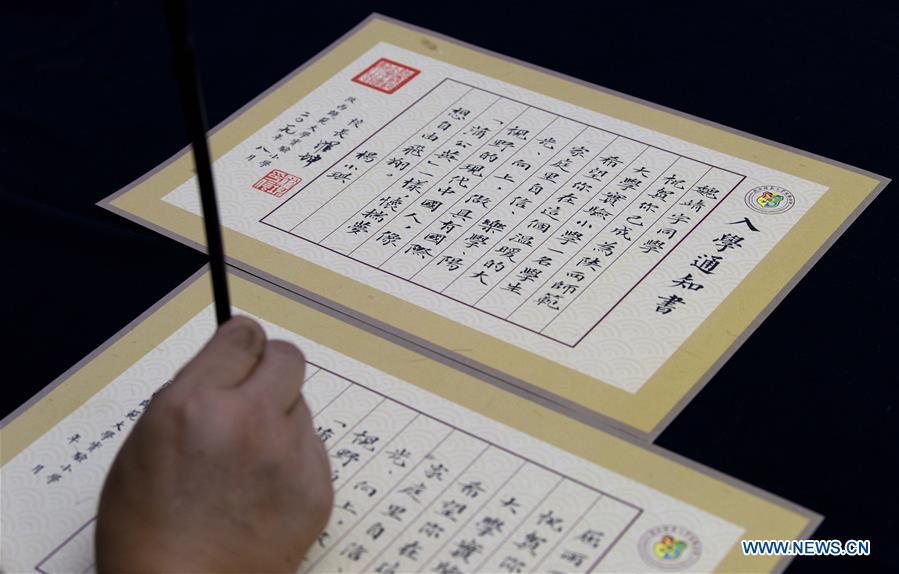 入學通知書
魏靖宇同學
祝賀你已成為陝西師範
大學實驗小學一名學生
希望你在這個溫暖的大
家庭里自信、樂學、陽
光、向上,做具有國際
視野的現代中國人,像
“蒲公英”一樣,懷揣夢
想自由飛翔。
楊小琪
校長
陝西師範大學實驗小學
二〇一九年八月
祝賀你
大學實驗
希望你在
家庭里自信
光、向上,
視野
師範大學實驗小學
年 月
WWW.NEWS.CN